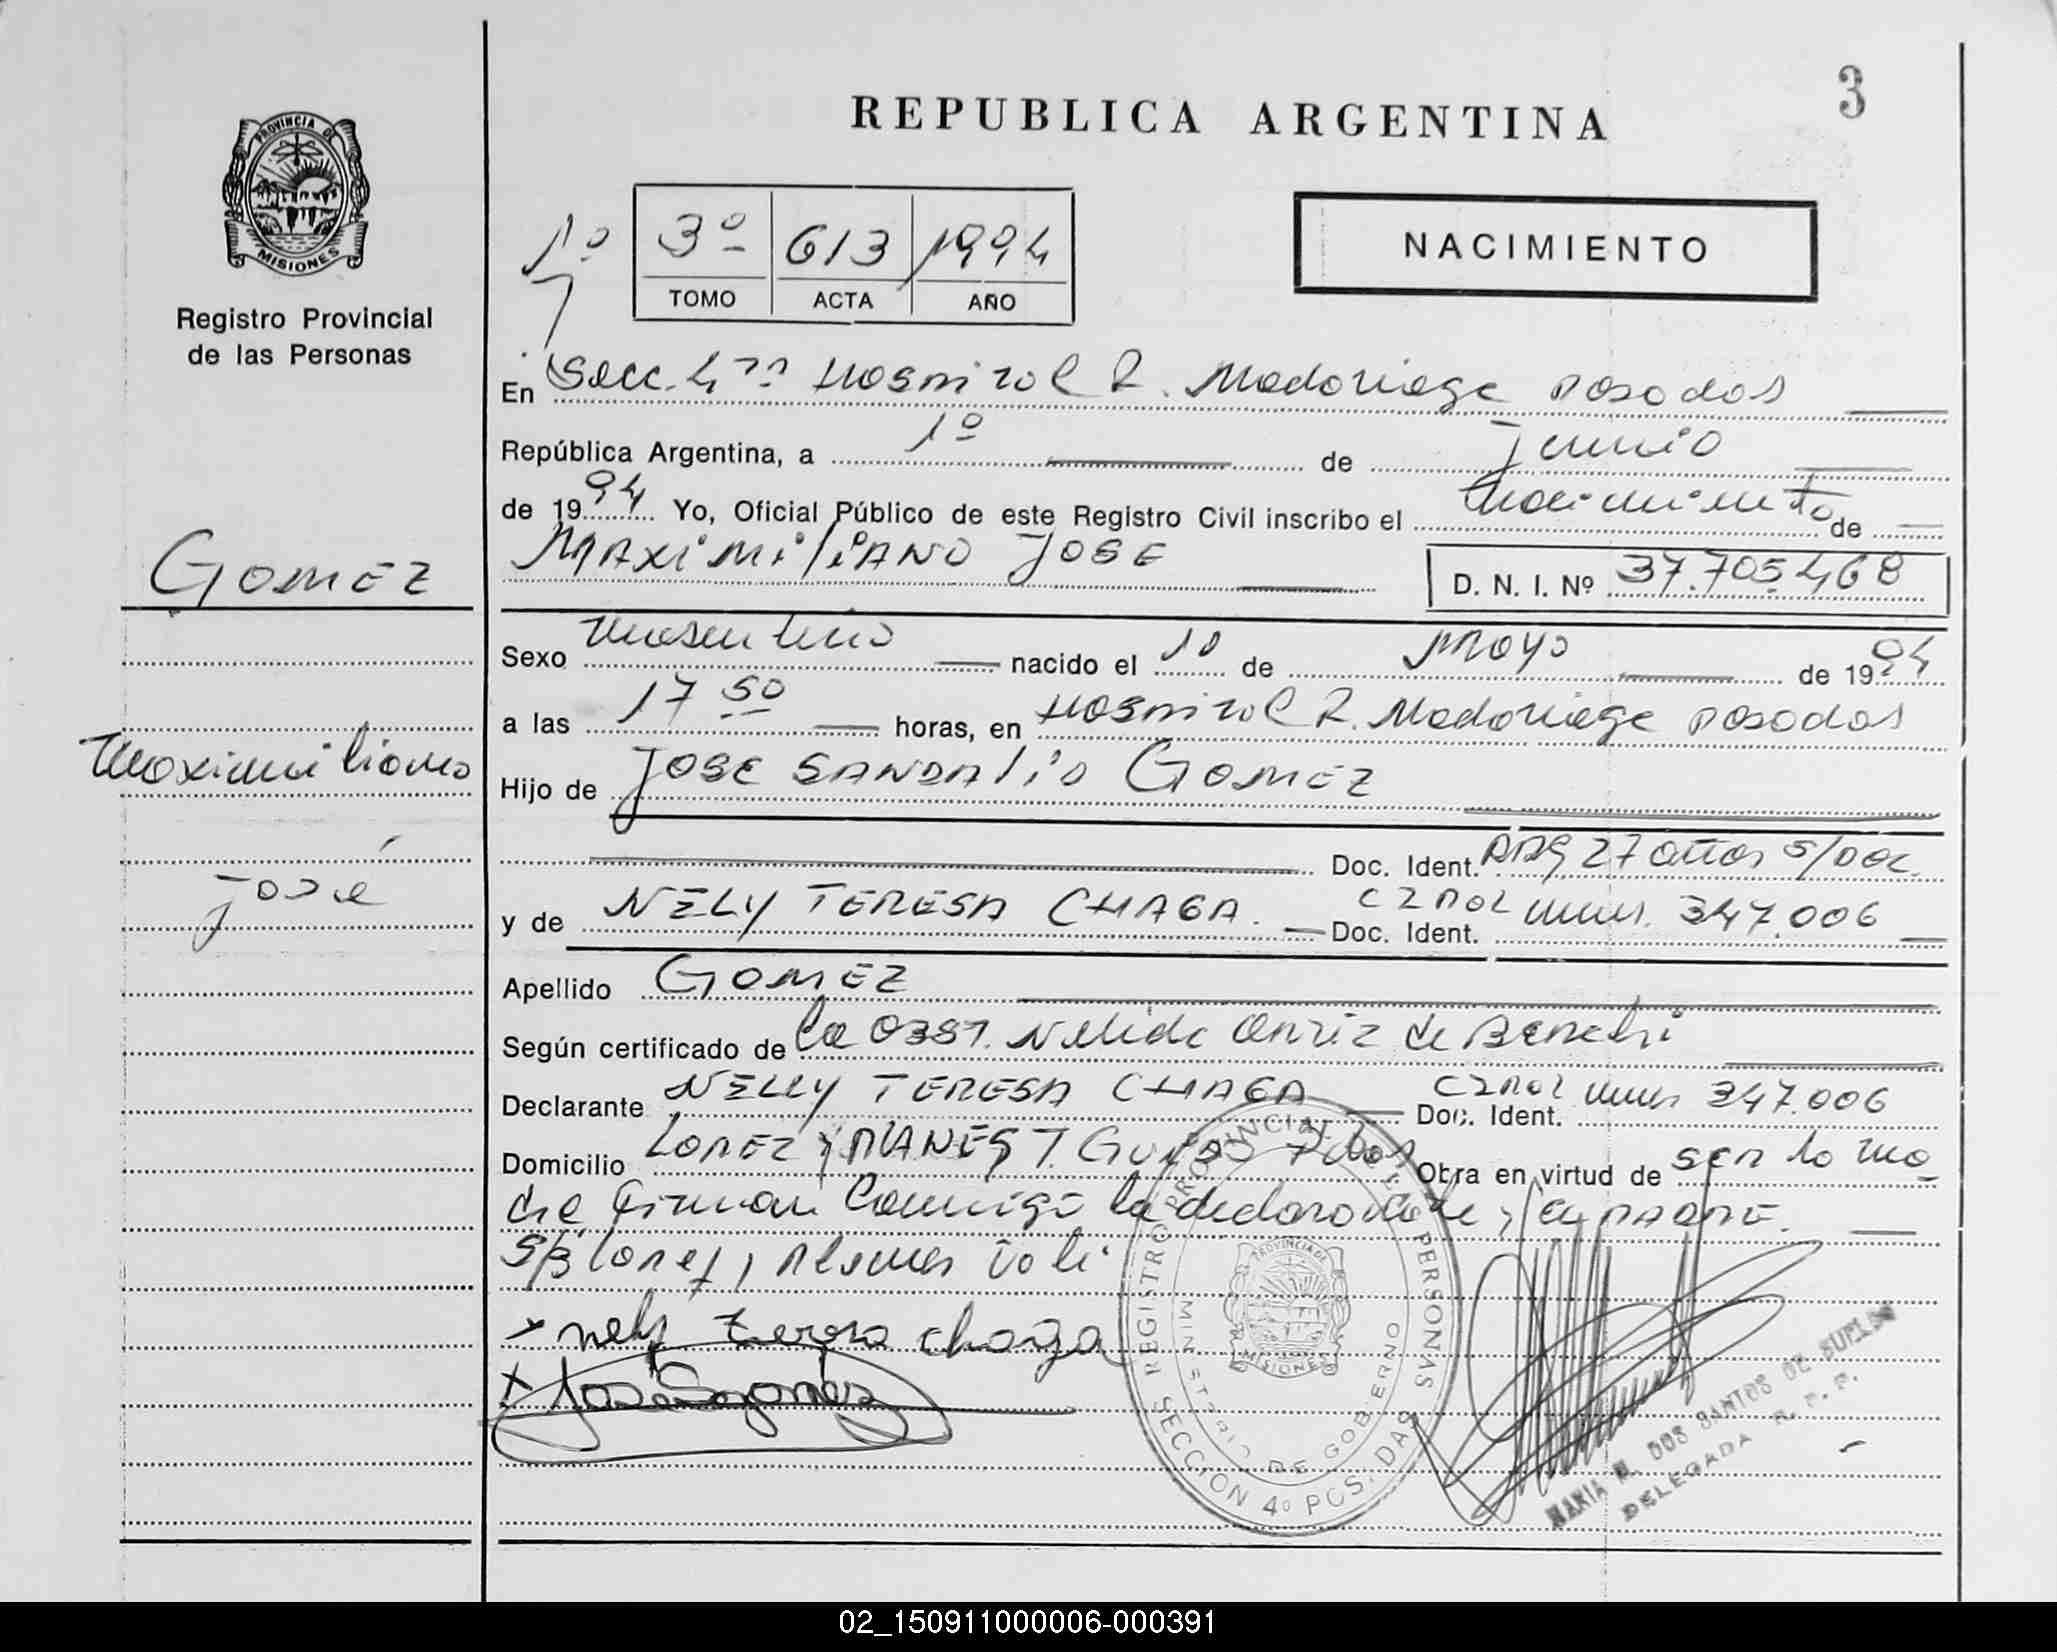 3
REPUBLICA ARGENTINA
PROVINCIA DE
MISIONES
Registro Provincial
de las Personas
1º
3º 613 1994
TOMO ACTA AÑO
NACIMIENTO
En Secc. 4ta Hospital R. Madariaga Posadas
República Argentina, a 1º de junio
de 1994 Yo, Oficial Público de este Registro Civil inscribo el nacimiento de
GOMEZ
MAXIMILIANO JOSE D. N. I. Nº 37.705.468
Sexo masculino nacido el 10 de mayo de 1994
a las 17 50 horas, en Hospital R. Madariaga Posadas
Maximiliano
Hijo de JOSE SANDALIO GOMEZ
Doc. Ident. ARG 27 años s/Doc.
José
y de NELY TERESA CHAGA. Doc. Ident. C I Pol mnes. 347.006
Apellido GOMEZ
Según certificado de la Obst. Nelida de
Declarante NELLY TERESA CHAGA Doc. Ident. C I Pol mnes 347.006
Domicilio LOPEZ Y PLANES T. Obra en virtud de ser la ma
dre firman conmigo la declarante y el PADRE.
S/B Lopez, Planes Vale
x nely teresa chaga
x José S gomez
REGISTRO PROVINCIAL DE LAS PERSONAS
SECCION 4º POS. DAS
MINISTERIO DE GOBIERNO
PROVINCIA DE
MISIONES
MARIA DOS SANTOS DE
DELEGADA R. P. P.
02_150911000006-000391